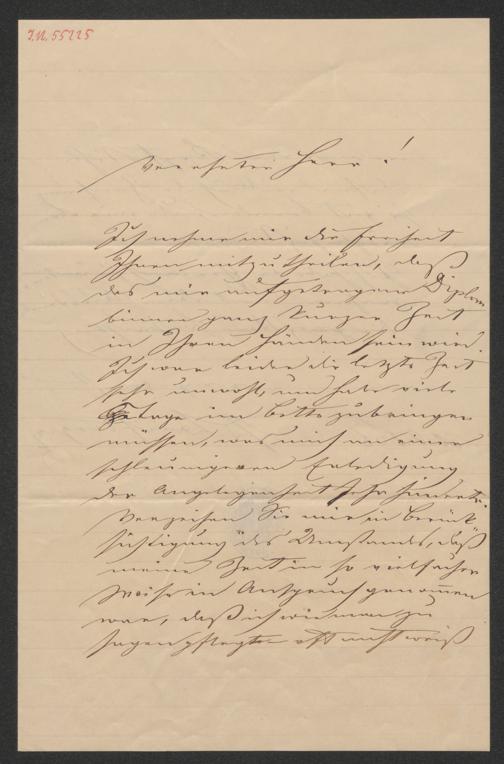 J.N. 55225
Verehrter Herr!
Ich nehme mir die Freiheit
Ihnen mitzutheilen, daß
das mir aufgetragene Diplom
binnen ganz kurzer Zeit
in Ihren Händen sein wird.
Ich war leider die letzte Zeit
sehr unwohl, und habe viele
Tage im Bette zubringen
müssen, was mich an einer
schleunigeren Erledigung
der Angelegenheit sehr hinderte.
Verzeihen Sie mir in Berück-
sichtigung des Umstandes, daß
meine Zeit in so vielfacher
Weise in Anspruch genommen
war, daß ich wie man zu
sagen pflegte oft nicht weiß